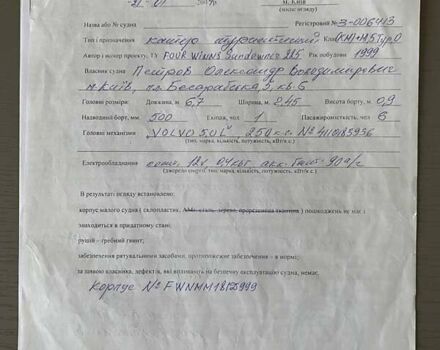 м. Київ
(місце огляду)
Назва або № судна Регістровий № З-006413
Тип і призначення катер туристичний Клас
Автор і номер проекту, ТУ FOUR WINNS Sundowner 285 Рік побудови 1999
Власник судна Петров Олександр Володимирович
м. Київ, пл. Бесарабська 5, кв 6
Головні розміри: Довжина, м 6,7 Ширина, м 2,45 Висота борту, м 0,9
Надводний борт, мм 500 Екіпаж, чол 1 Пасажиромісткість, чол 6
Головні механізми "VOLVO 5.0L" 250 к.с. № 4110183936
(тип, марка, кількість, потужність, кВт/к.с.)
Електрообладнання 12v. 0,4 квт акк. 90 а/г
(джерела енергії, тип, марка, кількість, потужність, кВт/к.с.)
В результаті огляду встановлено:
корпус малого судна ( склопластик, АМг, сталь, дерево, прорезинена тканина ) пошкоджень не має і
знаходиться в придатному стані;
рушій – гребний гвинт;
забезпечення рятувальними засобами, протипожежне забезпечення – в нормі;
за заявою власника, дефектів, які впливають на безпечну експлуатацію судна, немає.
Корпус № FWNMM181Z999